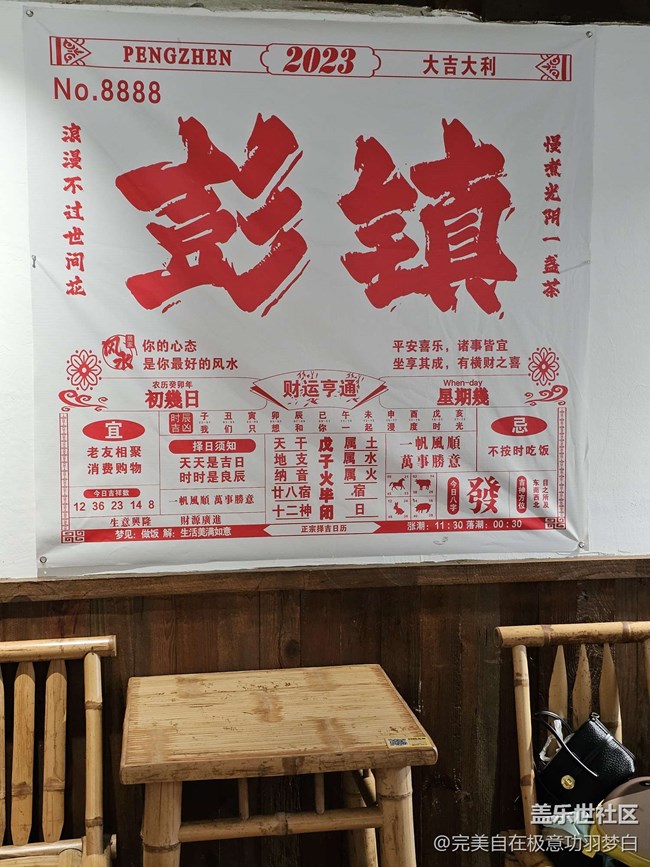 PENGZHEN
2023
大吉大利
No.8888
浪漫不过世间花
彭镇
慢煮光阴一盏茶
风水
你的心态
是你最好的风水
平安喜乐，诸事皆宜
坐享其成，有横财之喜
农历癸卯年
初幾日
财运亨通
When-day
星期幾
时辰吉凶
子 丑 寅 卯 辰 巳 午 未 申 酉 戌 亥
我 们 想 和 你 一 起 漫 度 时 光
宜
老友相聚
消费购物
今日吉祥数
12 36 23 14 8
择日须知
天天是吉日
时时是良辰
一帆風順 萬事勝意
天干
地支
纳音
廿八宿
十二神
戊子火毕闭
属土
属水
属火
宿
日
一帆風順
萬事勝意
今日八字
發
吉祥方位
东南西北
日之所及
忌
不按时吃饭
生意興隆 財源廣進
梦见：做饭 解：生活美满如意
正宗择吉日历
涨潮：11:30 落潮：00:30
盖乐世社区
@完美自在极意功羽梦白